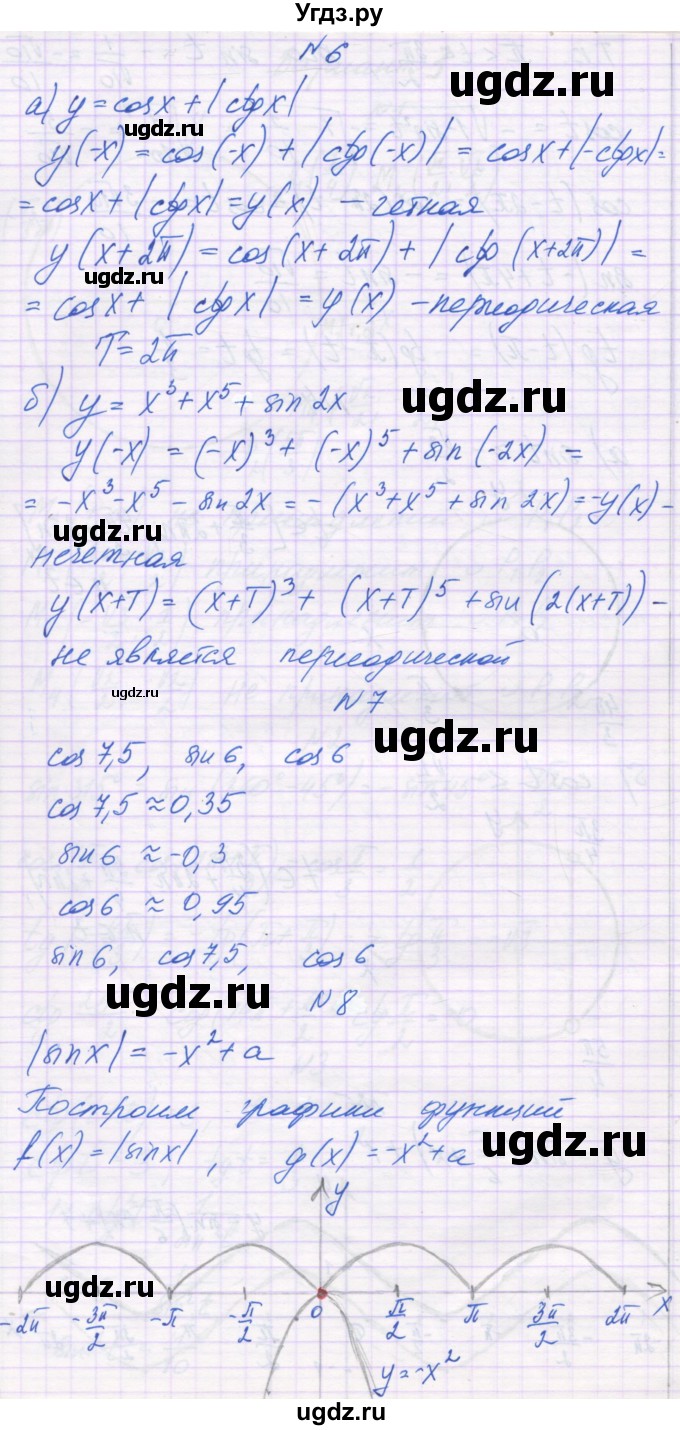 Угдз.ру
N6
а) y = cosx + |ctgx|
ugdz.ru
ugdz.ru
y(-x) = cos(-x) + |ctg(-x)| = cosx + |-ctgx| =
= cosx + |ctgx| = y(x) - четная
y(x+2π) = cos(x+2π) + |ctg(x+2π)| =
ugdz.ru
= cosx + |ctgx| = y(x) - периодическая
T = 2π
б) y = x³ + x⁵ + sin2x
ugdz.ru
y(-x) = (-x)³ + (-x)⁵ + sin(-2x) =
= -x³ - x⁵ - sin2x = -(x³ + x⁵ + sin2x) = -y(x) -
ugdz.ru
нечетная
y(x+T) = (x+T)³ + (x+T)⁵ + sin(2(x+T)) -
не является периодической
ugdz.ru
N7
ugdz.ru
cos7,5, sin6, cos6
cos7,5 ≈ 0,35
sin6 ≈ -0,3
cos6 ≈ 0,95
sin6, cos7,5, cos6
ugdz.ru
N8
|sinx| = -x² + a
Построим графики функций
ugdz.ru
f(x) = |sinx|, g(x) = -x² + a
y
ugdz.ru
-2π -3π/2 -π -π/2 0 π/2 π 3π/2 2π x
y = -x²
ugdz.ru
ugdz.ru